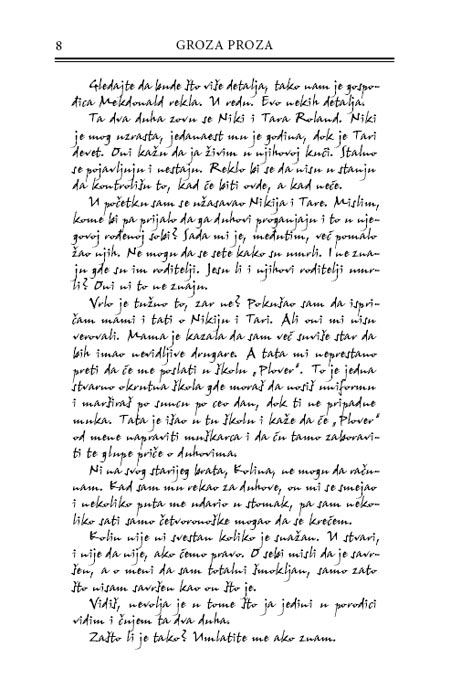 8
GROZA PROZA
Gledajte da bude što više detalja, tako nam je gospo-
đica Mekdonald rekla. U redu. Evo nekih detalja.
Ta dva duha zovu se Niki i Tara Roland. Niki
je mog uzrasta, jedanaest mu je godina, dok je Tari
devet. Oni kažu da ja živim u njihovoj kući. Stalno
se pojavljuju i nestaju. Reklo bi se da nisu u stanju
da kontrolišu to, kad će biti ovde, a kad neće.
U početku sam se užasavao Nikija i Tare. Mislim,
kome bi pa prijalo da ga duhovi proganjaju i to u nje-
govoj rođenoj sobi? Sada mi je, međutim, već pomalo
žao njih. Ne mogu da se sete kako su umrli. I ne zna-
ju gde su im roditelji. Jesu li i njihovi roditelji umr-
li? Oni ni to ne znaju.
Vrlo je tužno to, zar ne? Pokušao sam da ispri-
čam mami i tati o Nikiju i Tari. Ali oni mi nisu
verovali. Mama je kazala da sam već suviše star da
bih imao nevidljive drugare. A tata mi neprestano
preti da će me poslati u školu „Plover“. To je jedna
stvarno okrutna škola gde moraš da nosiš uniformu
i marširaš po suncu po ceo dan, dok ti ne pripadne
muka. Tata je išao u tu školu i kaže da će „Plover“
od mene napraviti muškarca i da ću tamo zaboravi-
ti te glupe priče o duhovima.
Ni na svog starijeg brata, Kolina, ne mogu da raču-
nam. Kad sam mu rekao za duhove, on mi se smejao
i nekoliko puta me udario u stomak, pa sam neko-
liko sati samo četvoronoške mogao da se krećem.
Kolin nije ni svestan koliko je snažan. U stvari,
i nije da nije, ako ćemo pravo. O sebi misli da je savr-
šen, a o meni da sam totalni šmokljan, samo zato
što nisam savršen kao on što je.
Vidiš, nevolja je u tome što ja jedini u porodici
vidim i čujem ta dva duha.
Zašto li je tako? Umlatite me ako znam.